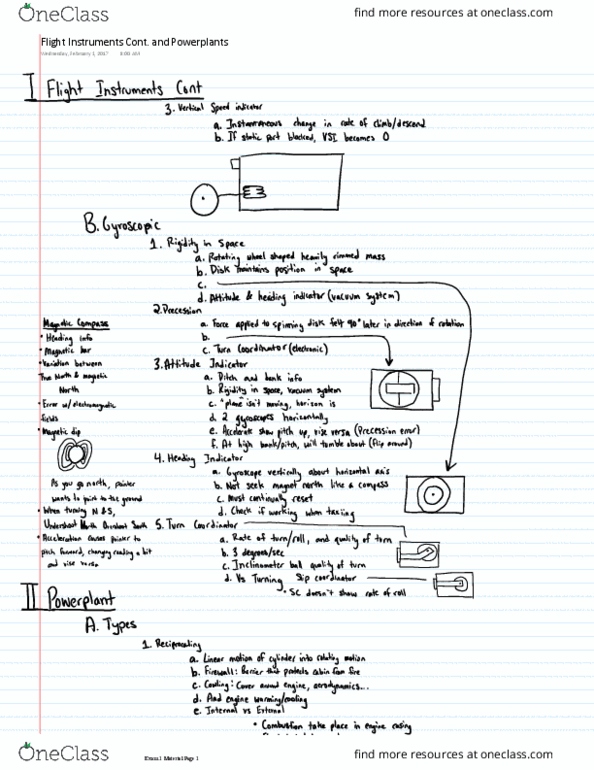 OneClass
find more resources at oneclass.com
Flight Instruments Cont. and Powerplants
Wednesday, February 1, 2017 8:00 AM
I Flight Instruments Cont
3. Vertical Speed indicator
a. Instantaneous change in rate of climb/descend
b. If static port blocked, VSI becomes 0
B. Gyroscopic
1. Rigidity in Space
a. Rotating wheel shaped heavily rimmed mass
b. Disk maintains position in space
c.
d. Attitude & heading indicator (vacuum system)
2. Precession
a. Force applied to spinning disk felt 90° later in direction of rotation
b.
c. Turn Coordinator (electronic)
3. Attitude Indicator
a. Pitch and bank info
b. Rigidity in space, vacuum system
c. "plane isn't moving, horizon is
d. 2 gyroscopes horizontally
e. Accelerate show pitch up, vise versa (Precession error)
f. At high bank/pitch, will tumble about (flip around)
4. Heading Indicator
a. Gyroscope vertically about horizontal axis
b. Not seek magnet north like a compass
c. Must continually reset
d. Check if working when taxiing
5. Turn Coordinator
a. Rate of turn/roll, and quality of turn
b. 3 degrees/sec
c. Inclinometer ball quality of turn
d. Vs Turning Slip coordinator
• SC doesn't show rate of roll
Magnetic Compass
• Heading info
• Magnetic bar
• Variation between
True North & magnetic
North
• Error w/ electromagnetic
fields
• Magnetic dip
As you go north, pointer
wants to point to the ground
• When turning N & S,
Undershoot North Overshoot South
• Acceleration causes pointer to
pitch forward, changing reading a bit
and vise versa
II Powerplant
A. Types
1. Reciprocating
a. Linear motion of cylinder into rotating motion
b. Firewall: Barrier that protects cabin from fire
c. Cowling: Cover around engine, aerodynamics...
d. And engine warming/cooling
e. Internal vs External
• Combustion take place in engine casing
OneClass
Exam 1 Material Page 1
find more resources at oneclass.com